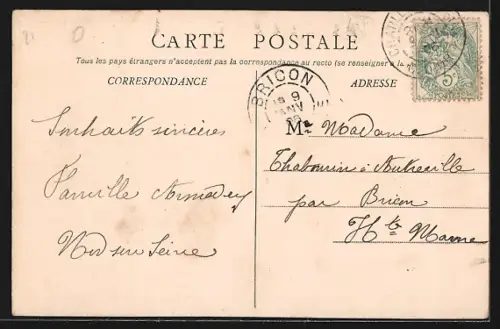 CARTE POSTALE
Tous les pays étrangers n'acceptent pas la correspondance au recto (se renseigner à la
CORRESPONDANCE
ADRESSE
BRICON
9
5
Souhaits sincères
Famille
Nod sur Seine
M Madame
Thabourin à Autreville
par Bricon
Hte Marne